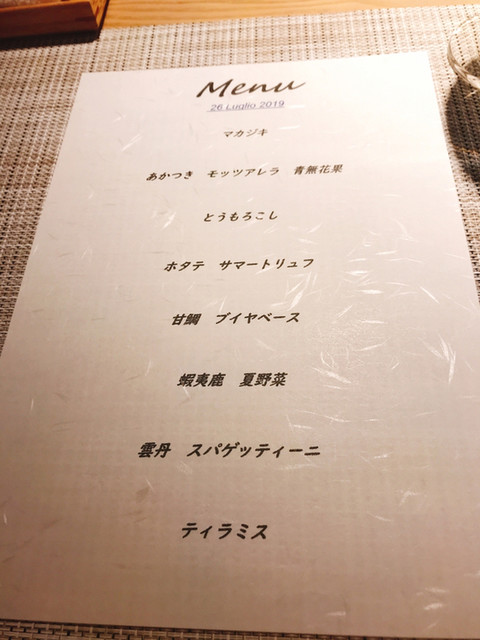 Menu
26 Luglio 2019
マカジキ
あかつき　モッツアレラ　青無花果
とうもろこし
ホタテ　サマートリュフ
甘鯛　ブイヤベース
蝦夷鹿　夏野菜
雲丹　スパゲッティーニ
ティラミス